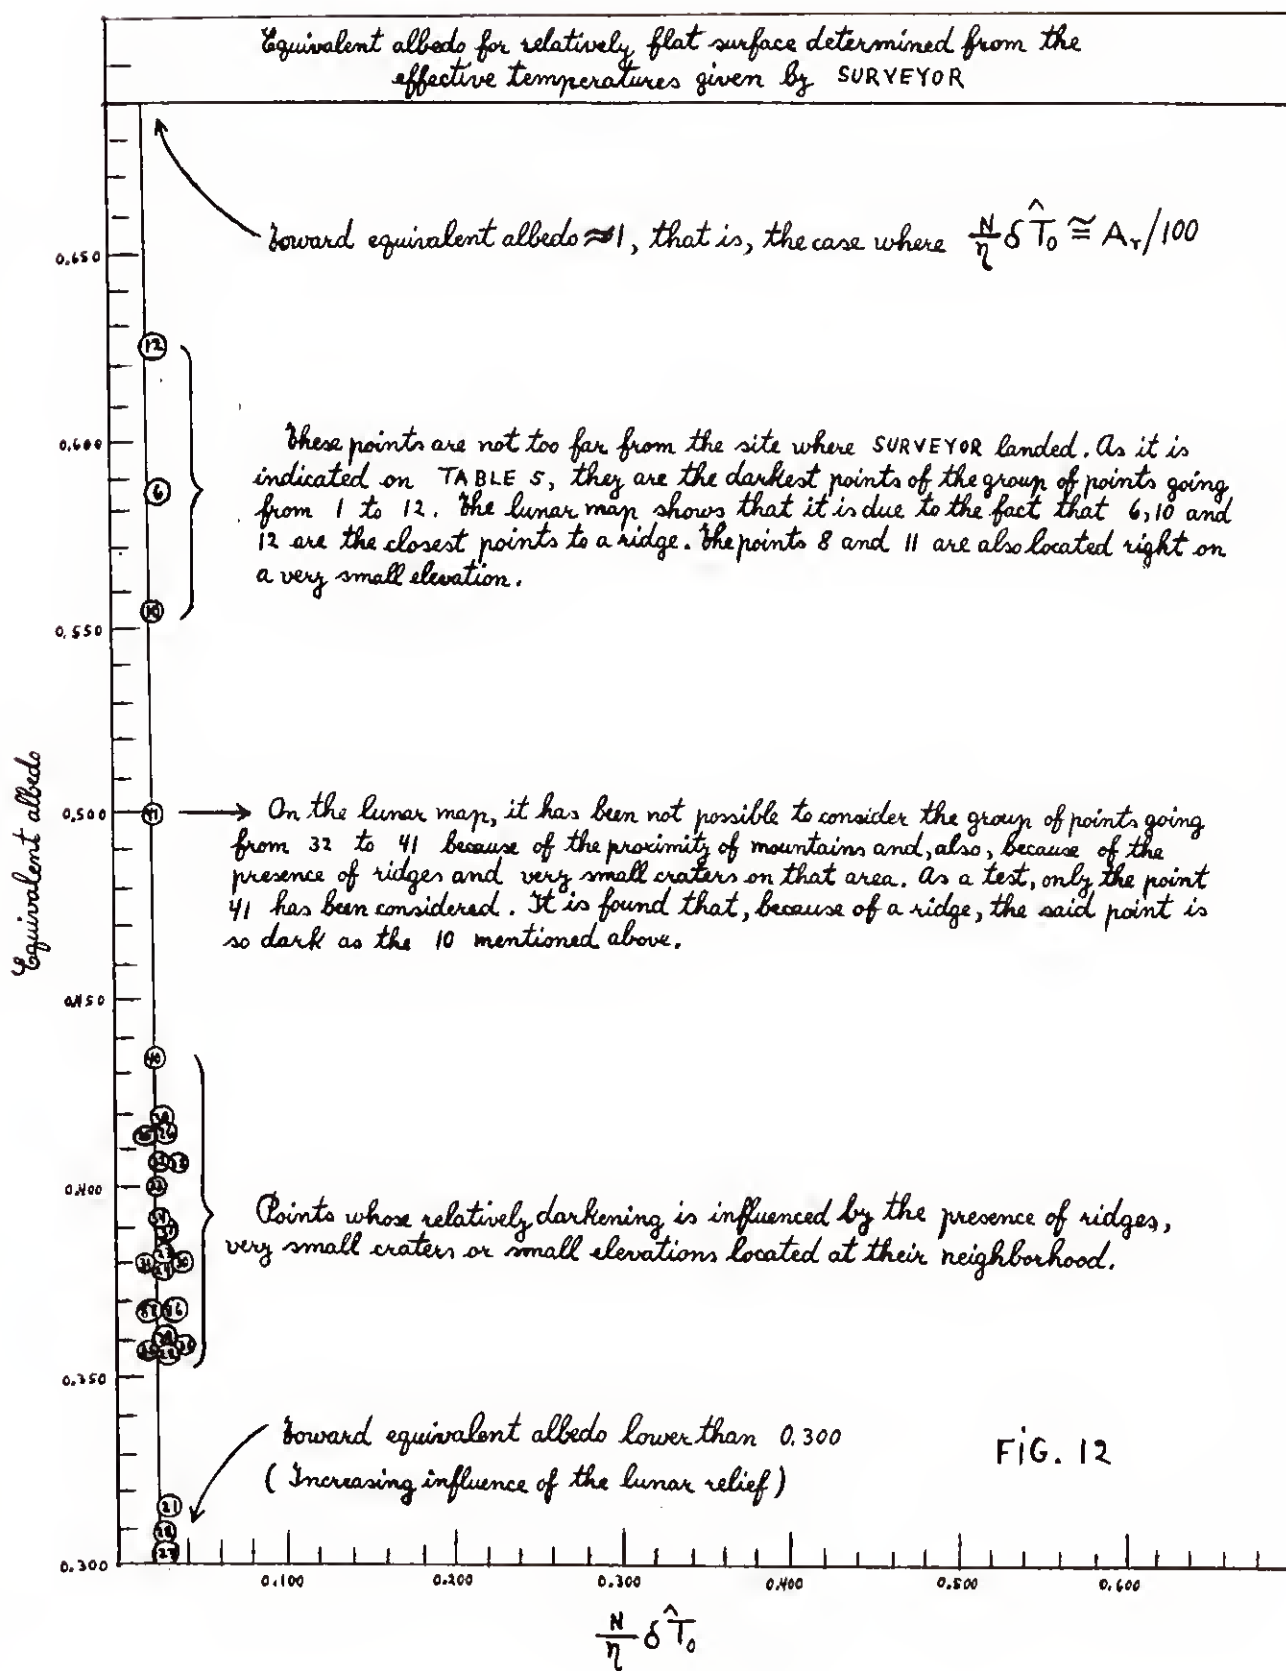 Equivalent albedo for relatively flat surface determined from the
effective temperatures given by SURVEYOR
Toward equivalent albedo ≈1, that is, the case where N/η δT̂₀ ≅ Aᵣ/100
0.650
12
These points are not too far from the site where SURVEYOR landed. As it is
indicated on TABLE 5, they are the darkest points of the group of points going
from 1 to 12. The lunar map shows that it is due to the fact that 6, 10 and
12 are the closest points to a ridge. The points 8 and 11 are also located right on
a very small elevation.
0.600
6
10
0.550
Equivalent albedo
0.500
41
On the lunar map, it has been not possible to consider the group of points going
from 32 to 41 because of the proximity of mountains and, also, because of the
presence of ridges and very small craters on that area. As a test, only the point
41 has been considered. It is found that, because of a ridge, the said point is
so dark as the 10 mentioned above.
0.450
0.400
Points whose relatively darkening is influenced by the presence of ridges,
very small craters or small elevations located at their neighborhood.
0.350
Toward equivalent albedo lower than 0.300
(Increasing influence of the lunar relief)
FiG. 12
21
0.300
0.100 0.200 0.300 0.400 0.500 0.600
N/η δT̂₀